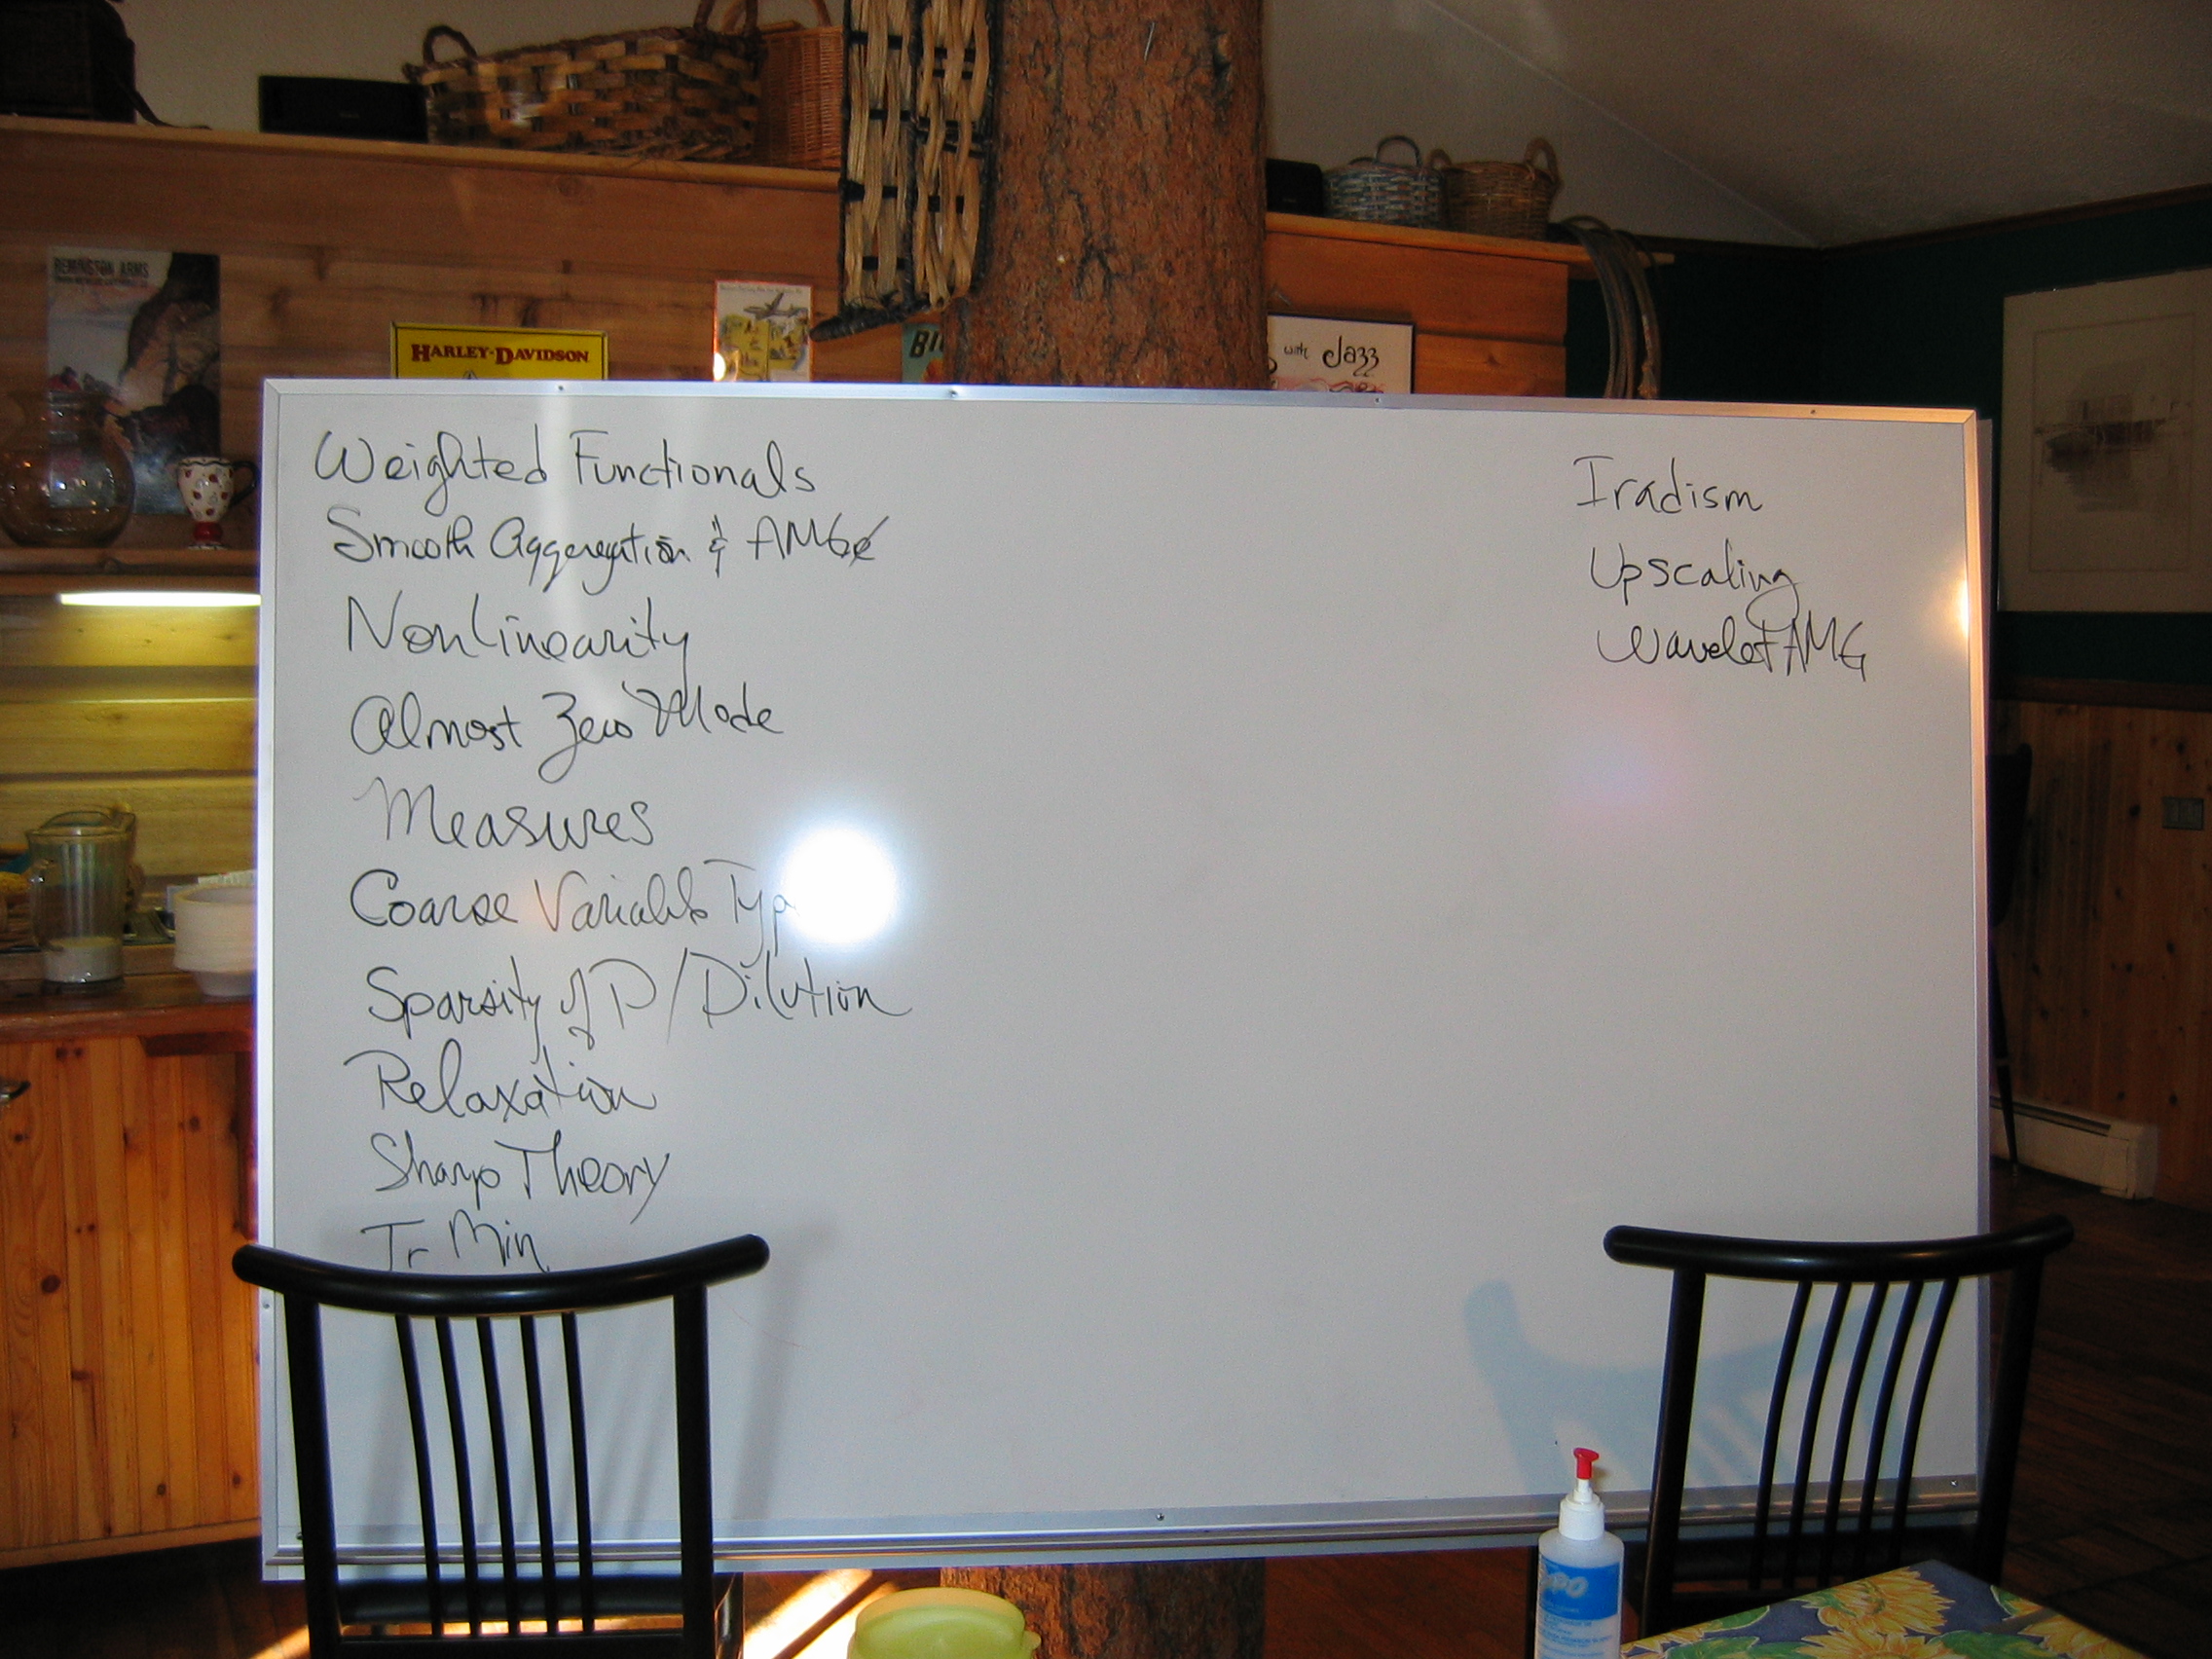 REMINGTON ARMS
HARLEY-DAVIDSON
with Jazz
Weighted Functionals
Smooth Aggregation & AMGe
Nonlinearity
Almost Zero Mode
Measures
Coarse Variable
Sparsity of P/Dilution
Relaxation
Sharp Theory
Tr Min
Iradism
Upscaling
Wavelet AMG